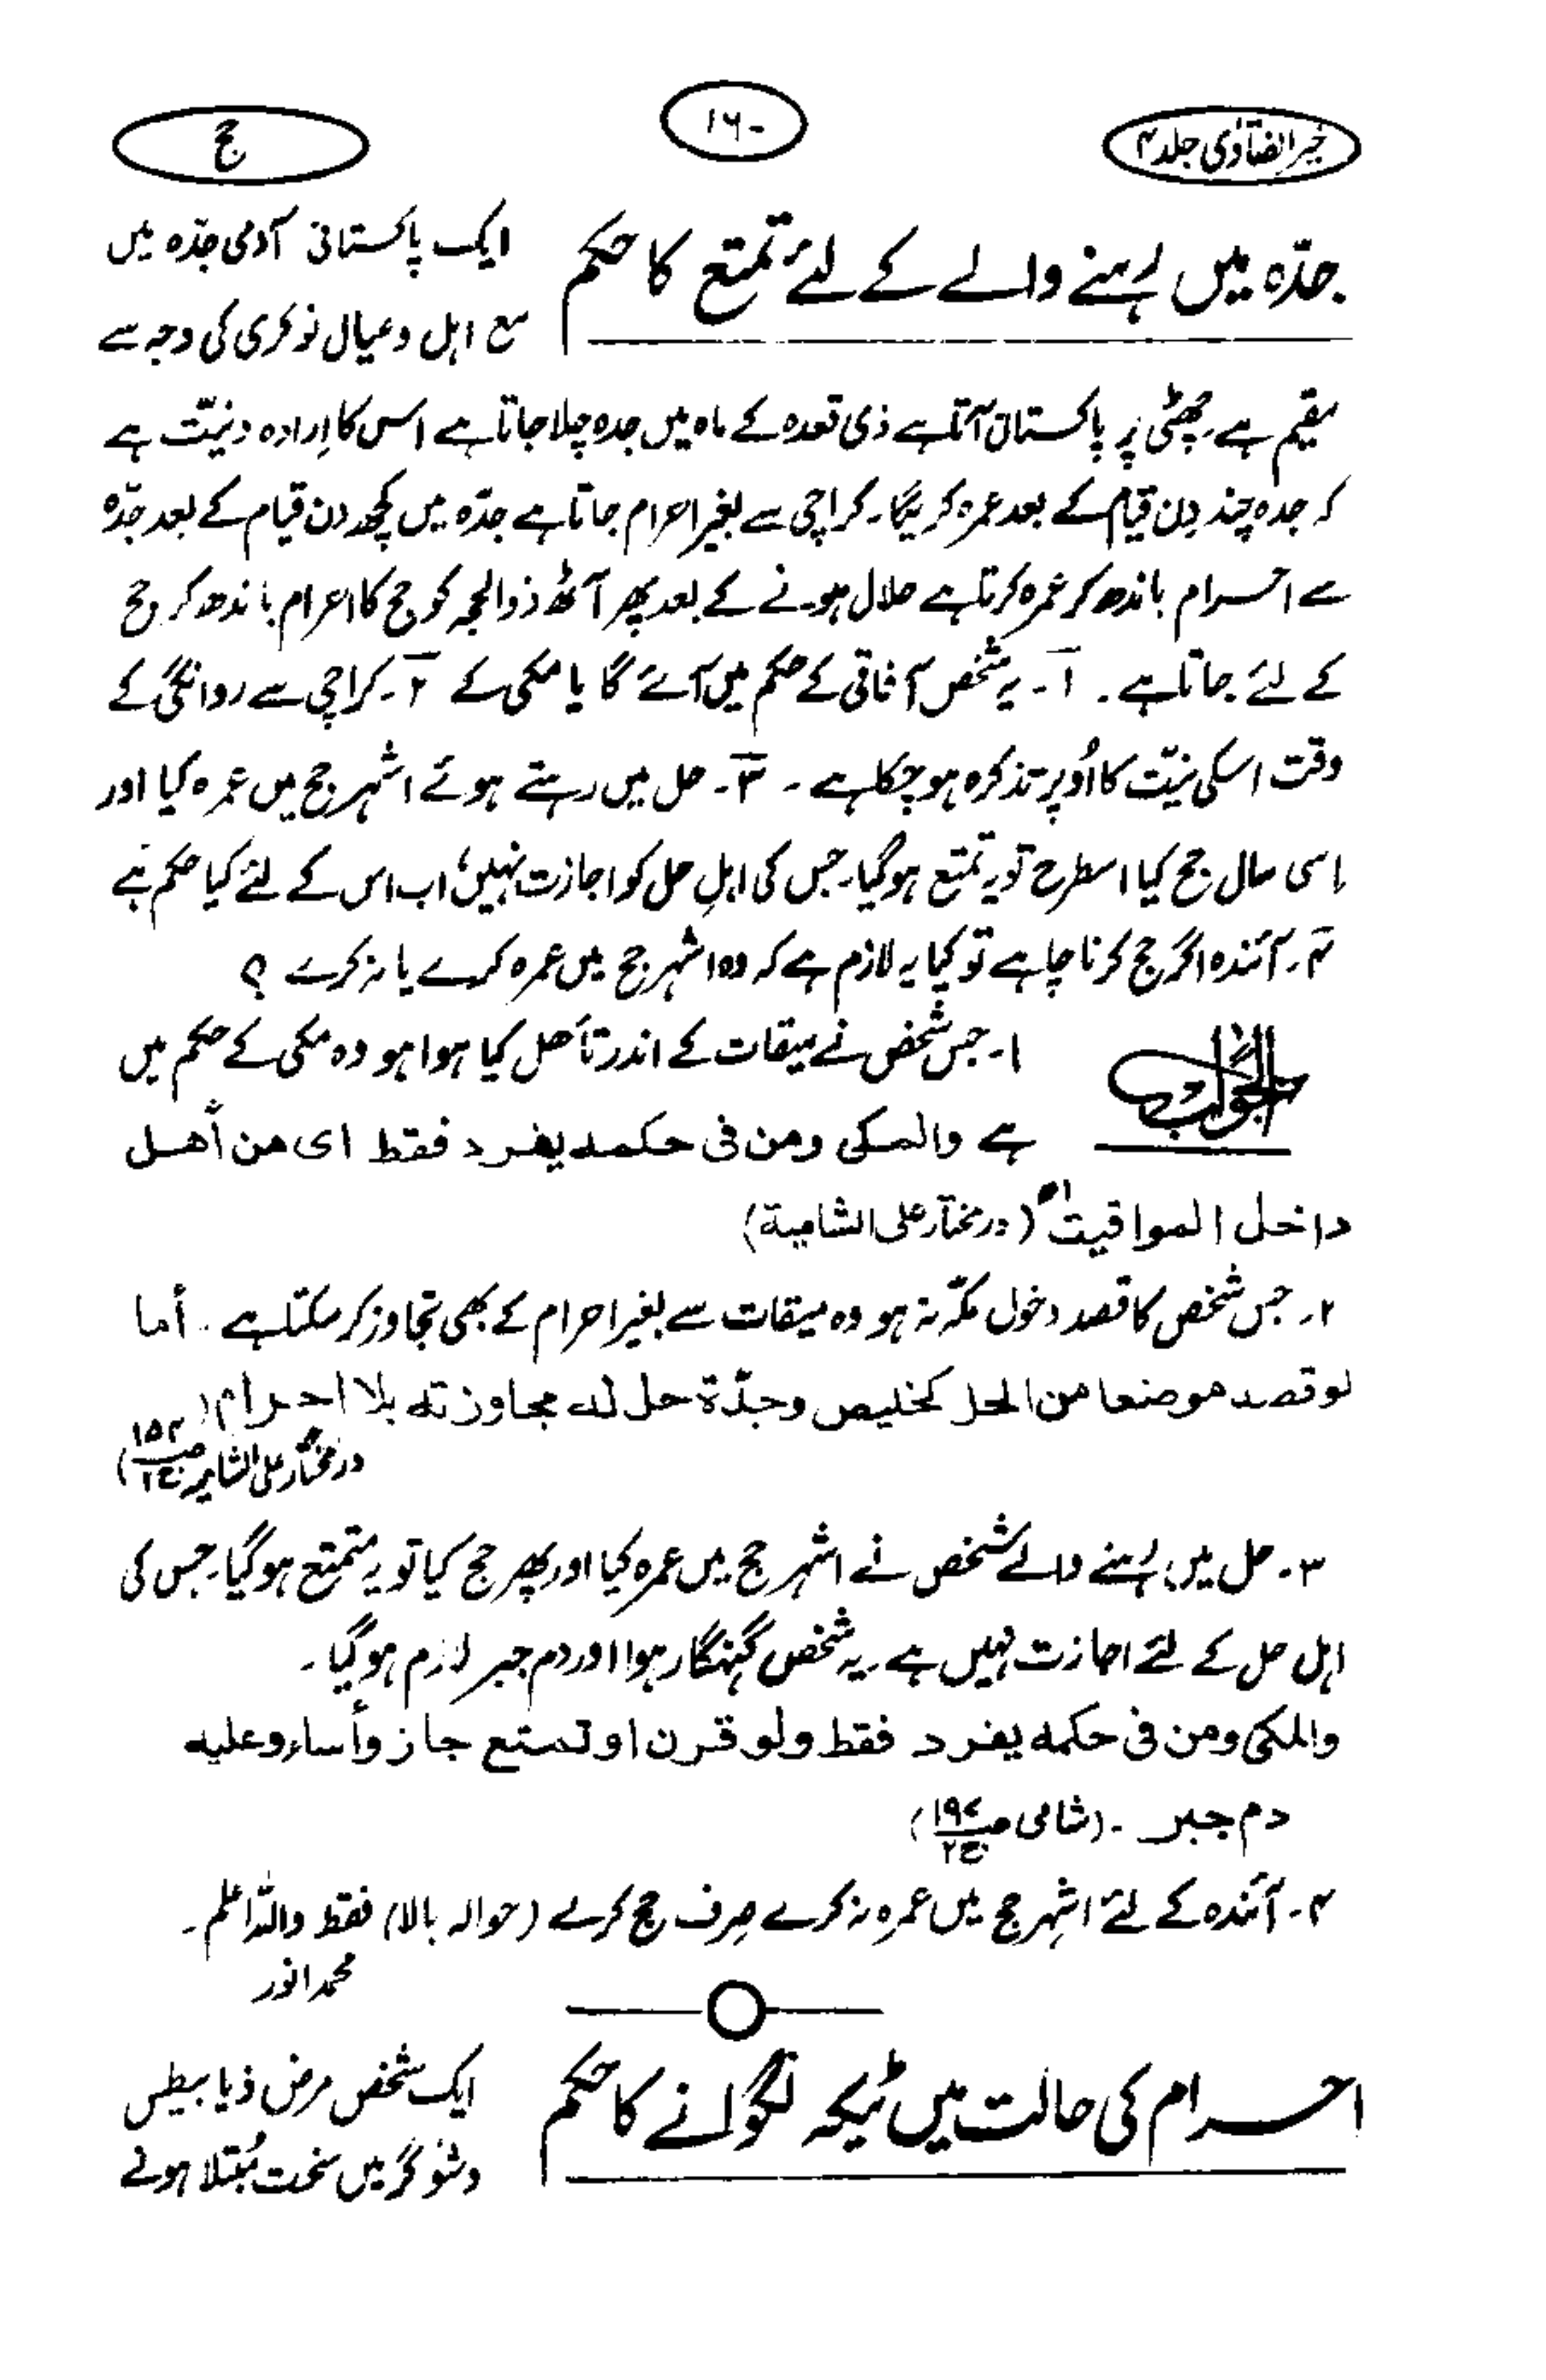 خیر الفتاوٰی جلد ۴
۱۶۰
حج
جدّہ میں رہنے والے کے لئے تمتع کا حکم
ایک پاکستانی آدمی جدّہ میں
مع اہل و عیال نوکری کی وجہ سے
مقیم ہے۔ چھٹی پر پاکستان آتا ہے ذی قعدہ کے ماہ میں جدہ چلا جاتا ہے اس کا اِرادہ و نیّت ہے
کہ جدہ چند دِن قیام کے بعد عمرہ کریگا۔ کراچی سے بغیر احرام جاتا ہے جدّہ میں کچھ دن قیام کے بعد جدّہ
سے احرام باندھ کر عمرہ کرتا ہے حلال ہونے کے بعد پھر آٹھ ذوالحجہ کو حج کا احرام باندھ کر حج
کے لئے جاتا ہے۔ ۱۔ یہ شخص آفاقی کے حکم میں آئے گا یا مکی کے ۲۔ کراچی سے روانگی کے
وقت اسکی نیّت کا اُوپر تذکرہ ہو چکا ہے۔ ۳۔ حل میں رہتے ہوئے اشہر حج میں عمرہ کیا اور
اسی سال حج کیا اسطرح تو یہ تمتع ہوگیا۔ جس کی اہلِ حل کو اجازت نہیں، اب اس کے لئے کیا حکم ہے
۴۔ آئندہ اگر حج کرنا چاہے تو کیا یہ لازم ہے کہ وہ اشہر حج میں عمرہ کرے یا نہ کرے ؟
الجواب
۱۔ جس شخص نے میقات کے اندر تأھل کیا ہوا ہو وہ مکی کے حکم میں
ہے والمکی ومن فی حکمہ یفرد فقط ای من أھل
داخل المواقیت اھ (درمختار علی الشامیة)
۲۔ جس شخص کا قصد دخول مکہ نہ ہو وہ میقات سے بغیر احرام کے بھی تجاوز کر سکتا ہے۔ أما
لو قصد موضعا من الحل کخلیص وجدّة حل لہ مجاوزتہ بلا احرام (
درمختار علی الشامیہ ص۱۵۴ ج۲)
۳۔ حل میں رہنے والے شخص نے اشہر حج میں عمرہ کیا اور پھر حج کیا تو یہ متمتع ہوگیا۔ جس کی
اہل حل کے لئے اجازت نہیں ہے۔ یہ شخص گنہگار ہوا اور دم جبر لازم ہوگیا۔
والمکی ومن فی حکمہ یفرد فقط ولو قرن او تمتع جاز وأساء وعلیہ
دم جبر ۔ (شامی ص۱۹۷ ج۲)
۴۔ آئندہ کے لئے اشہر حج میں عمرہ نہ کرے صِرف حج کرے (حوالہ بالا) فقط واللہ اعلم۔
محمد انور
احرام کی حالت میں ٹیکہ لگوانے کا حکم
ایک شخص مرض ذیابیطس
و شوگر میں سخت مُبتلا ہونے